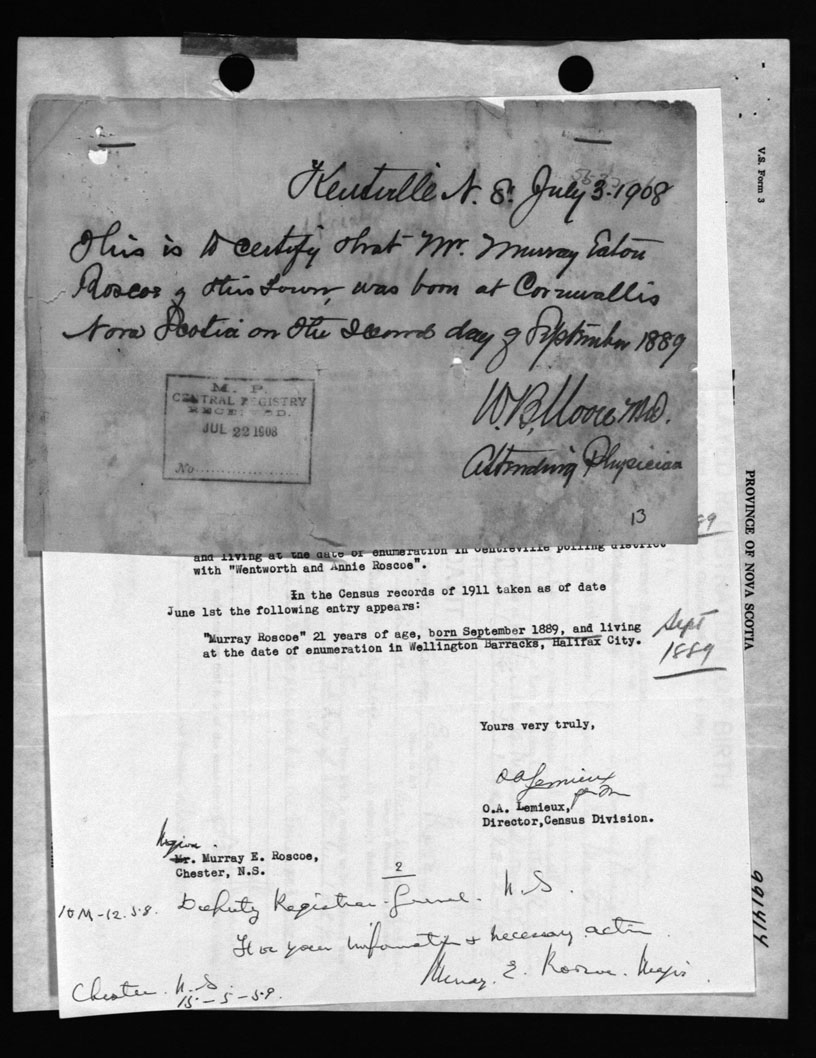 Kentville N.S. July 3. 1908
This is to certify that Mr. Murray Eaton
Roscoe of this town, was born at Cornwallis
Nova Scotia on the second day of September 1889
W.B. Moore M.D.
Attending Physician
M. P.
CENTRAL REGISTRY
RECEIVED.
JUL 22 1908
No..................
13
and living at the date of enumeration in Centreville polling district
with "Wentworth and Annie Roscoe".
In the Census records of 1911 taken as of date
June 1st the following entry appears:
"Murray Roscoe" 21 years of age, born September 1889, and living
at the date of enumeration in Wellington Barracks, Halifax City.
Sept
1889
Yours very truly,
O A Lemieux
O.A. Lemieux,
Director,Census Division.
Major.
Mr. Murray E. Roscoe,
Chester, N.S.
2
Deputy Registrar General. N.S.
For your information & necessary action
Murray. E. Roscoe. Major.
Chester. N.S.
15-5-59.
V.S. Form 3
PROVINCE OF NOVA SCOTIA
BIRTH
991414